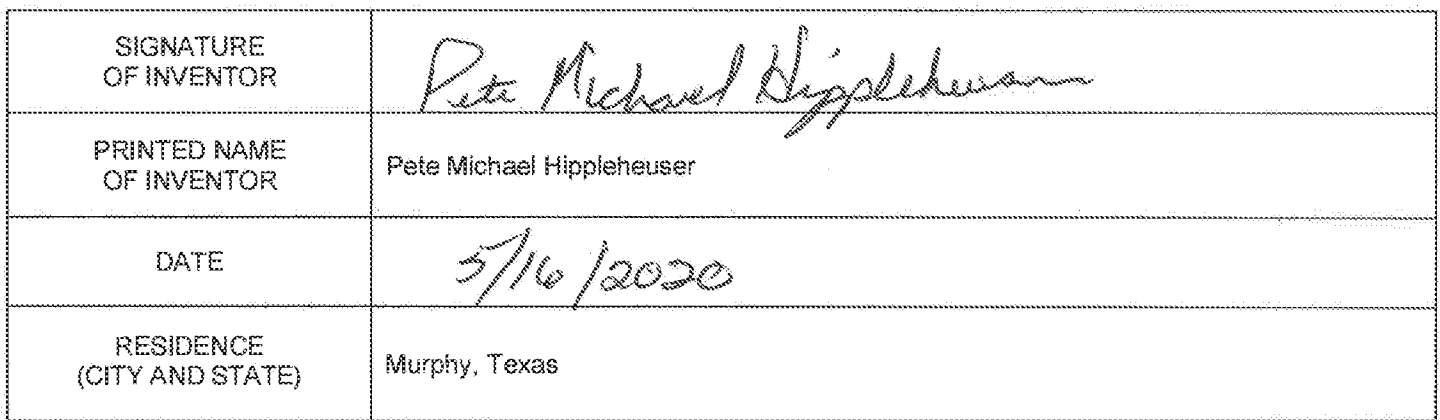 SIGNATURE
OF INVENTOR
Pete Michael Hippleheuser
PRINTED NAME
OF INVENTOR
Pete Michael Hippleheuser
DATE
5/16/2020
RESIDENCE
(CITY AND STATE)
Murphy, Texas